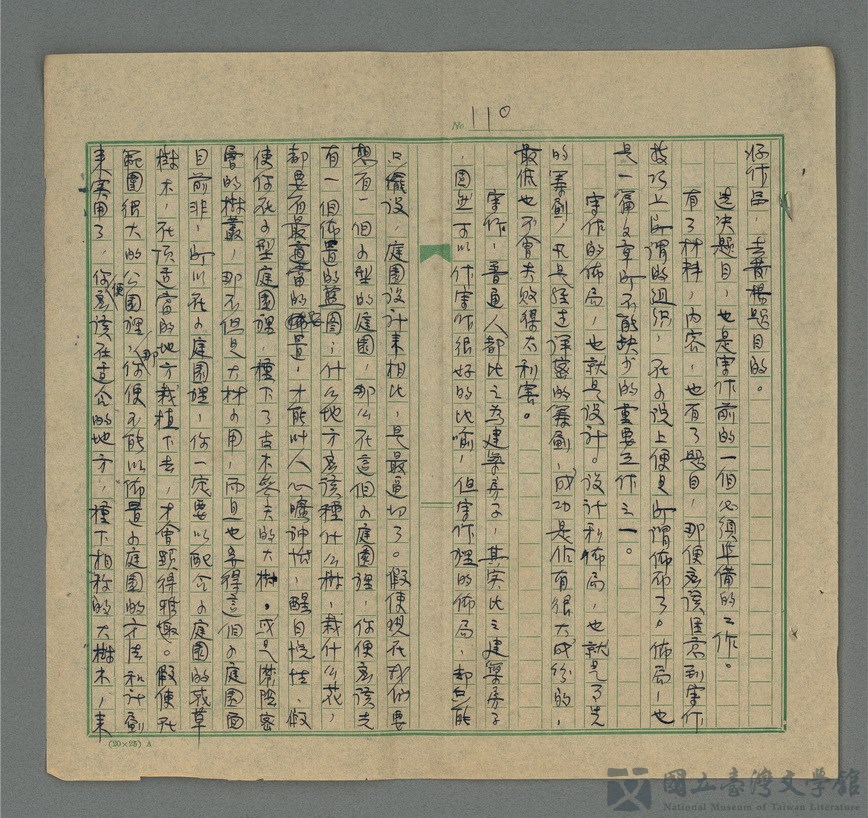 No. 110
好作品，去發揚題目的。
選決題目，也是寫作前的一個必須準備的工作。
有了材料，內容，也有了題目，那便應該注意到寫作
技巧上所謂的組織，在小說上便是所謂佈局了。佈局，也
是一篇文章所不能缺少的重要工作之一。
寫作的佈局，也就是設計。設計和佈局，也就是事先
的籌劃，凡是經過詳密的籌劃，成功是佔有很大成份的，
最低也不會失敗得太利害。
寫作，普通人都比之為建築房子，其實比之建築房子
，固然可以作寫作很好的比喻，但寫作裡的佈局，却只能
只擺設，庭園設計來相比，是最適切了。假使現在我們要
想有一個小型的庭園，那么在這個小庭園裡，你便應該先
有一個佈置的藍圖，什么地方應該種什么樹，栽什么花，
都要有最適當的佈置，才能叫人心曠神怡，醒目悅性，假
使你在小型庭園裡，種下了古木參天的大樹。或是濃蔭密
層的樹叢，那不但是大材小用，而且也弄得這個小庭園面
目前非，所以在小庭園裡，你一定要以配合小庭園的花草
樹木，在頂適當的地方栽植下去，才會顯得雅緻。假使在
範圍很大的公園裡，那你便不能以佈置小庭園的方法和計劃
來實用了，你便應該在適合的地方，種下相稱的大樹木，來
(20×25) A
國立臺灣文學館
National Museum of Taiwan Literature